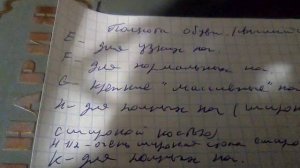 Полнота обуви (
E - для узких ног
F - для нормальных ног
G - крепкие "массивные" ног
H - для полных ног (широк
с широкой костью)
H 1/2 - очень широкая стопа с широк
K - для полных ног.